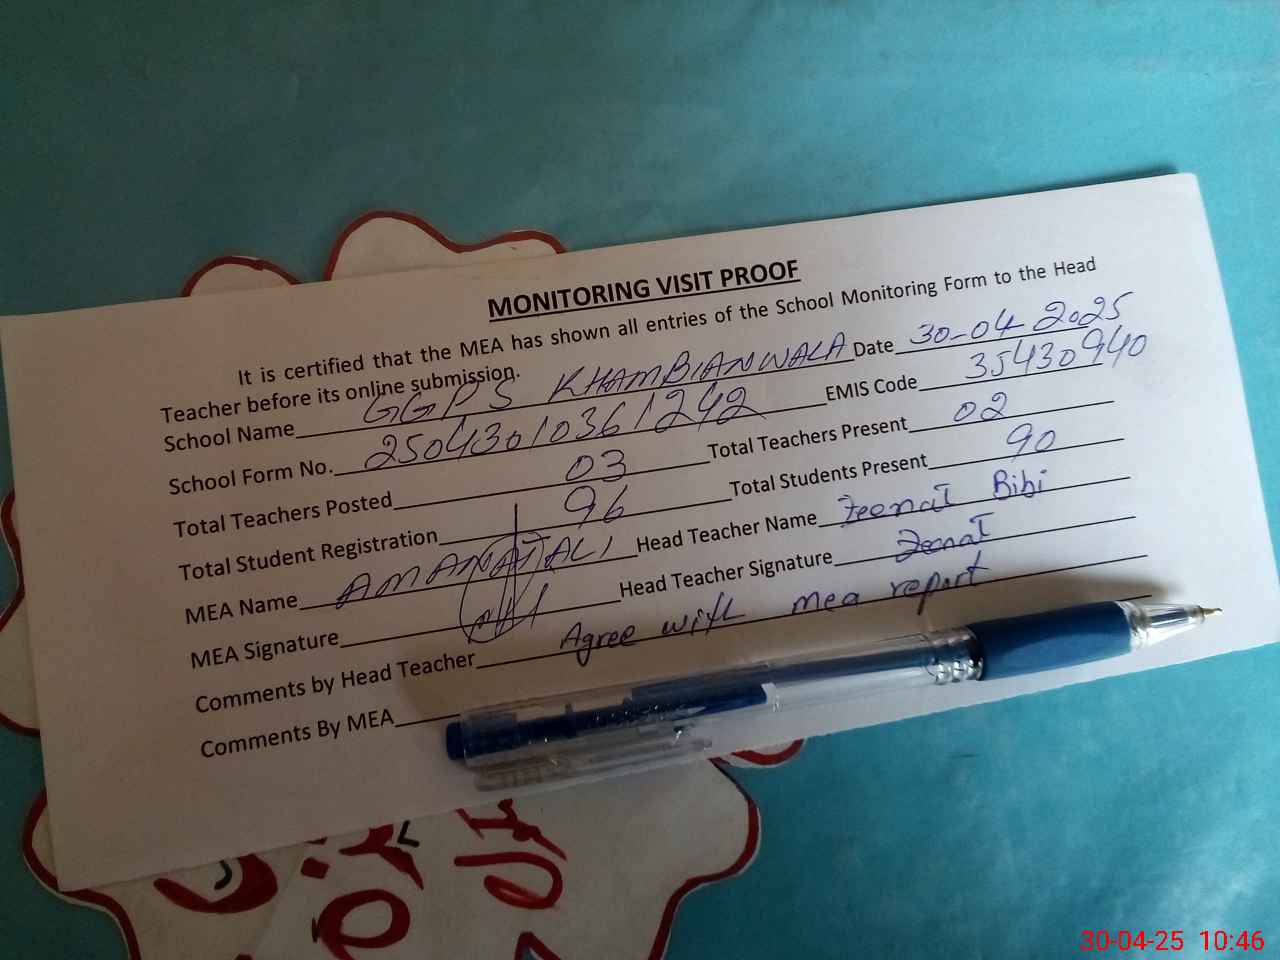 MONITORING VISIT PROOF
It is certified that the MEA has shown all entries of the School Monitoring Form to the Head
Teacher before its online submission.
School Name GGPS KHAMBIANWALA Date 30-04-2025
School Form No. 25043010361242 EMIS Code 35430940
Total Teachers Posted 03 Total Teachers Present 02
Total Student Registration 96 Total Students Present 90
MEA Name AMANAT ALI Head Teacher Name Zeenat Bibi
MEA Signature Head Teacher Signature Zeenat
Comments by Head Teacher Agree with mea report
Comments By MEA
30-04-25 10:46